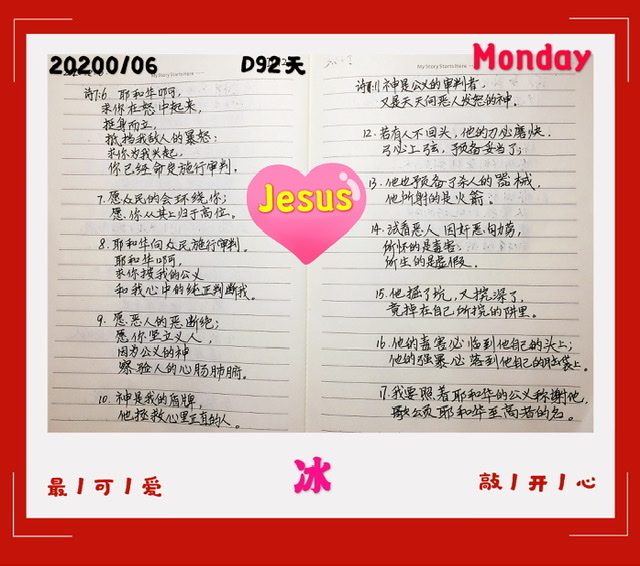 20200/06
D92天
Monday
My Story Starts Here
诗7:6 耶和华啊,
求你在怒中起来,
挺身而立,
抵挡我敌人的暴怒;
求你为我兴起,
你已经命定施行审判。
7. 愿众民的会环绕你;
愿你从其上归于高位。
8. 耶和华向众民施行审判。
耶和华啊,
求你按我的公义
和我心中的纯正判断我。
9. 愿恶人的恶断绝;
愿你坚立义人,
因为公义的神
察验人的心肠肺腑。
10. 神是我的盾牌,
他拯救心里正直的人。
Jesus
诗7:11 神是公义的审判者,
又是天天向恶人发怒的神。
12. 若有人不回头,他的刀必磨快,
弓必上弦,预备妥当了;
13. 他也预备了杀人的器械,
他所射的是火箭。
14. 试看恶人因奸恶劬劳,
所怀的是毒害,
所生的是虚假。
15. 他掘了坑,又挖深了,
竟掉在自己所挖的阱里。
16. 他的毒害必临到他自己的头上;
他的强暴必落到他自己的脑袋上。
17. 我要照着耶和华的公义称谢他,
歌颂耶和华至高者的名。
最 / 可 / 爱
冰
敲 / 开 / 心